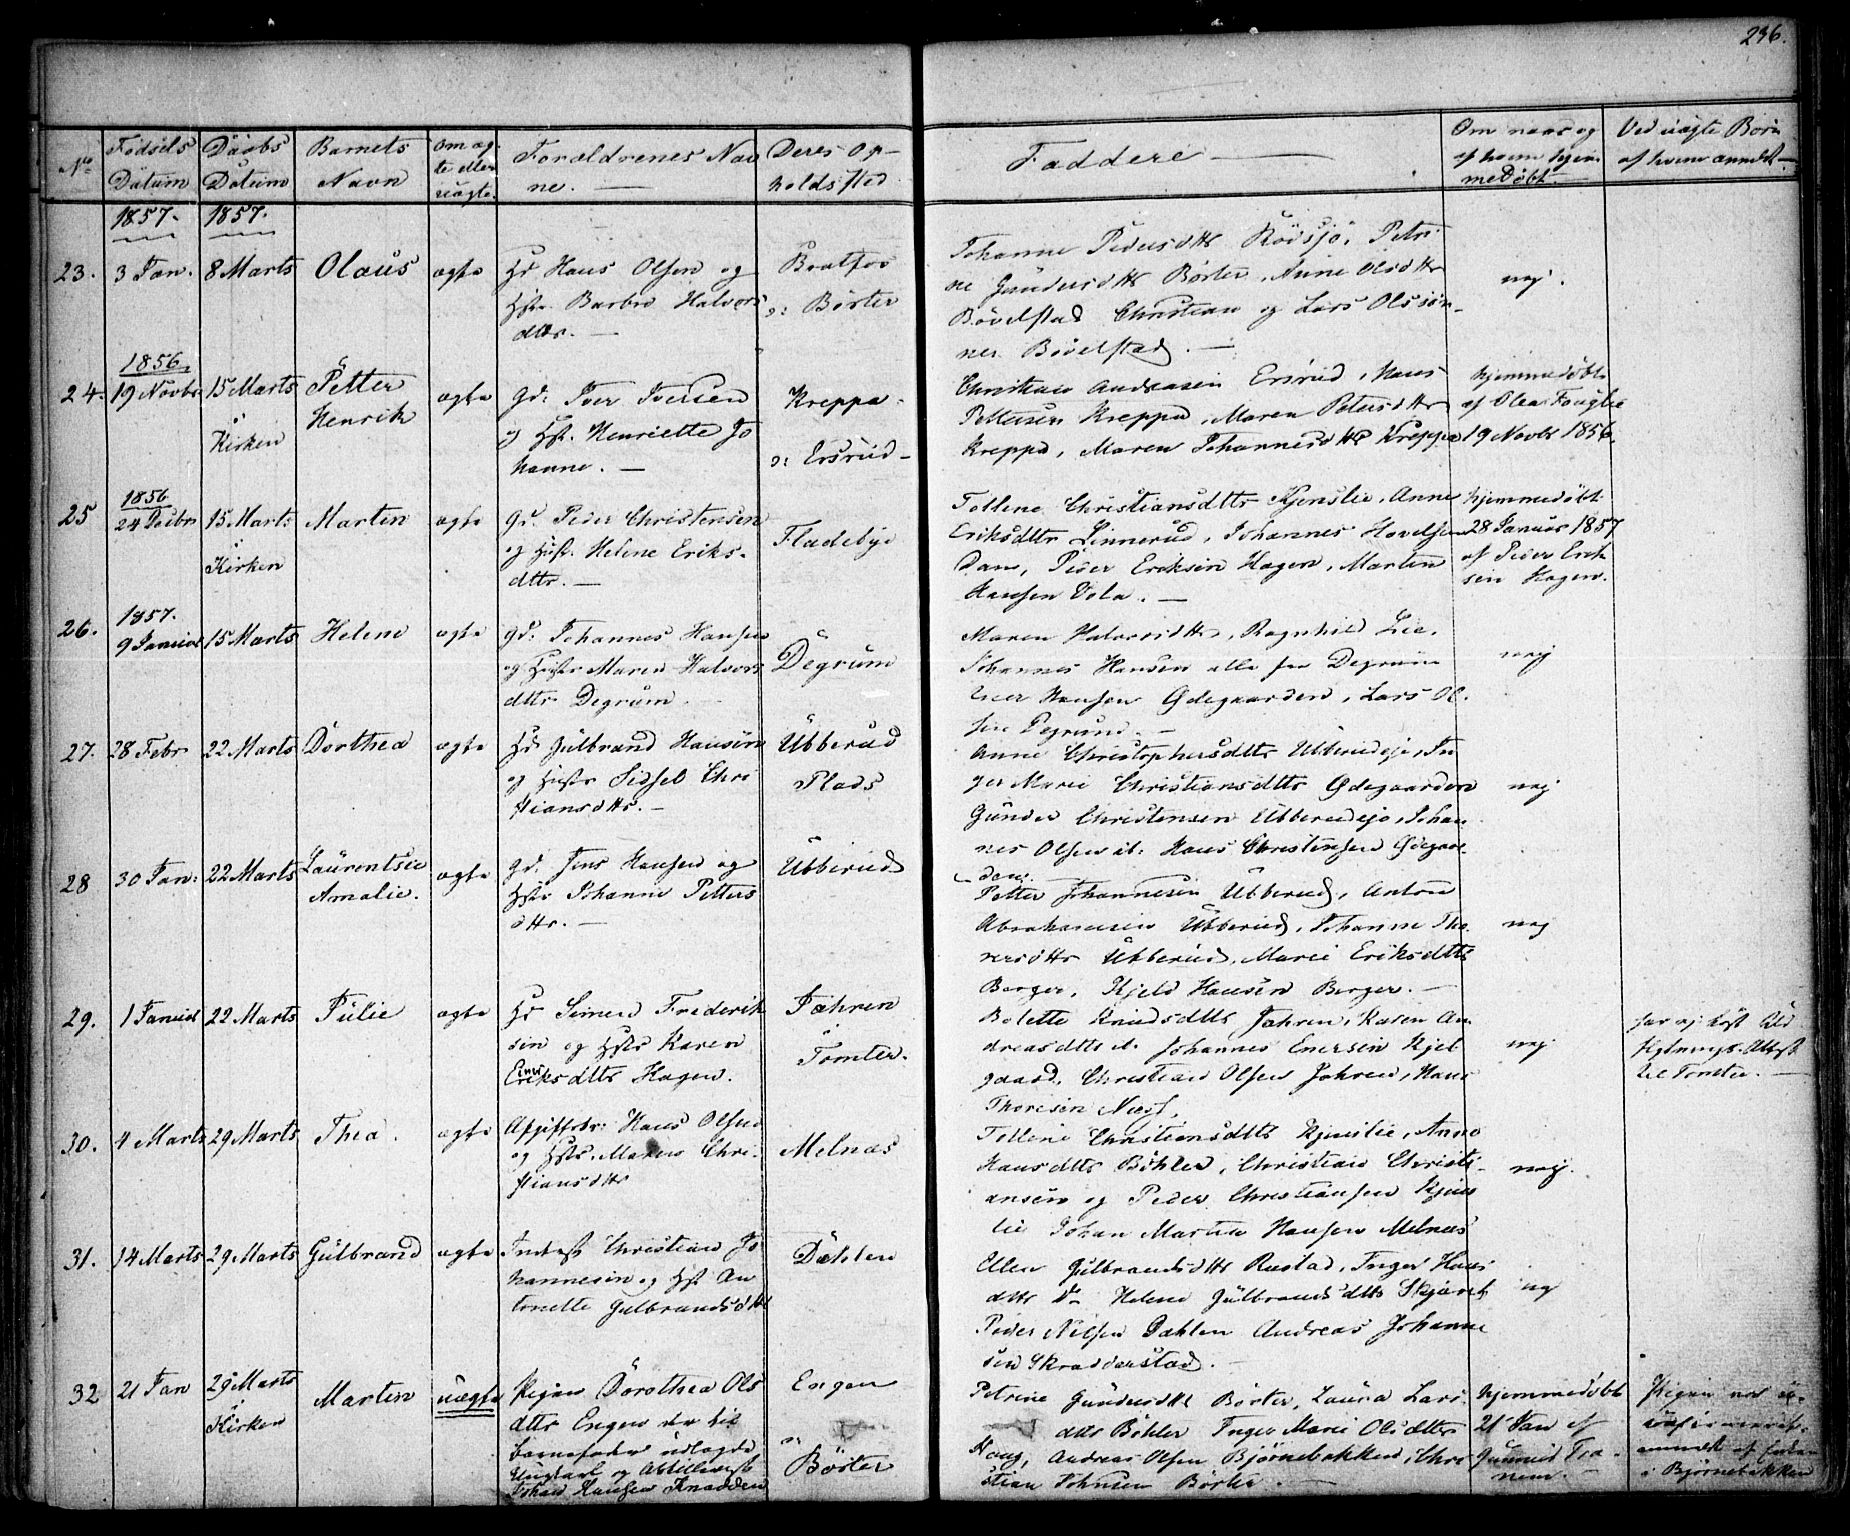 236.
No
Fødsels Datum
Daabs Datum
Barnets Navn
Om ægte eller uægte.
Forældrenes Navne.
Deres Opholdssted
Faddere
Om naar og af hvem hjemmedøbt.
Ved uægte Børn af hvem anmeldt
1857. 1857.
23. 3 Jan. 8 Marts Olaus ægte
Hans Olsen og
Barbro Halvors
dttr.
Bratfos
Børter
Johanne Pedersdttr Rødsjø, Petri
ne Gundersdttr Børter, Anne Olsdttr
Bøvelstad Christian og Lars Olsøn
ner Bøvelstad.
nej.
1856
24. 19 Novbr 15 Marts Petter ægte
i Kirken Henrik
Gd: Iver Iversen
og Hst. Henriette Jo
hanne.
Kreppa.
Ersrud
Christian Andreasen Ersrud, Hans
Pettersen Kreppa, Maren Petersdttr
Kreppa, Maren Johannesdttr Kreppa
hjemmedøbt
af Olea Fougli
19 Novbr 1856.
1856
25 24 Decbr 15 Marts Marten ægte
i Kirken
Gd. Peder Christensen
og Hust. Helene Eriks
dttr.
Fladebye
Tollene Christiansdttr Kjenslie, Anne
Eriksdttr Linnerud, Johannes Hovelsen
Dam, Peder Eriksen Hagen, Marten
Hansen Vola.
hjemmedøbt
28 Januar 1857
af Peder Erik
sen Hagen.
1857.
26. 9 Januar 15 Marts Helene ægte
Gd: Johannes Hansen
og Hustr Maren Halvors
dttr Degrum.
Degrum
Maren Halvorsdttr, Ragnhild Lie,
Johannes Hansen alle fra Degrum
Iver Hansen Ødegaarden, Lars Ol
sen Degrum.
nej
27. 28 Febr 22 Marts Dorthea ægte
Gulbrand Hansen
og Hustr Sidsel Chri
stiansdttr.
Ubberud
Plads
Anne Christophersdttr Ubberudeje, In
ger Marie Christiansdttr Ødegaarden
Gunder Christensen Ubberudeje, Johan
nes Olsen it: Hans Christensen Ødegaar
den.
nej
28 30 Jan: 22 Marts Laurentsie ægte
Amalie.
Gd. Jens Hansen og
Hstr Johanne Petters
dttr.
Ubberud
Petter Johannesen Ubberud, Anton
Abrahamsen Ubberud, Johanne Tho
rersdttr Ubberud, Marie Eriksdttr
Berger, Kjeld Hansen Berger.
nej
29. 1 Januar 22 Marts Julie ægte
Simen Frederik
sen og Hstr Karen
Eriksdttr Hagen.
Jahren
Tomter.
Bolette Knudsdttr Jahren, Karen An
dreasdttr it. Johannes Enersen Kjel
gaard, Christian Olsen Jahren, Hans
Thoresen Næss.
nej
til Tomter.
30. 4 Marts 29 Marts Thea. ægte
Hans Olsen
og Hstr. Maren Chri
stiansdttr
Melnæs
Tollene Christiansdttr Kjenslie, Anne
Hansdttr Bøhler, Christian Christi
ansen og Peder Christiansen Kjens
lie Johan Martin Hansen Melnæs
nej.
31. 14 Marts 29 Marts Gulbrand ægte
Inderst Christian Jo
hannesen og Hst An
tonette Gulbrandsdttr
Dæhlen
Ellen Gulbrandsdttr Rustad, Inger Hans
dttr Do Helene Gulbrandsdttr Skjøret
Peder Nilsen Dæhlen Andreas Johanne
sen Skradderstad.
nej
32 21 Jan 29 Marts Marten uægte
i Kirken
Pigen Dorothea Ols
dttr Engen der til
Barnefader udlagde
Ungkarl og
Johan Hansen Knadden
Engen
Børter
Petrine Gundersdttr Børter, Laura Lars
dttr Bøhler Inger Marie Olsdttr
Haug, Andreas Olsen Bjørnebakken, Chri
stian Johnsen Børter.
hjemmedøbt
21 Jan af
Gunnild Tra
nem.
Pigen
anmeldt af
i Bjørnebakken